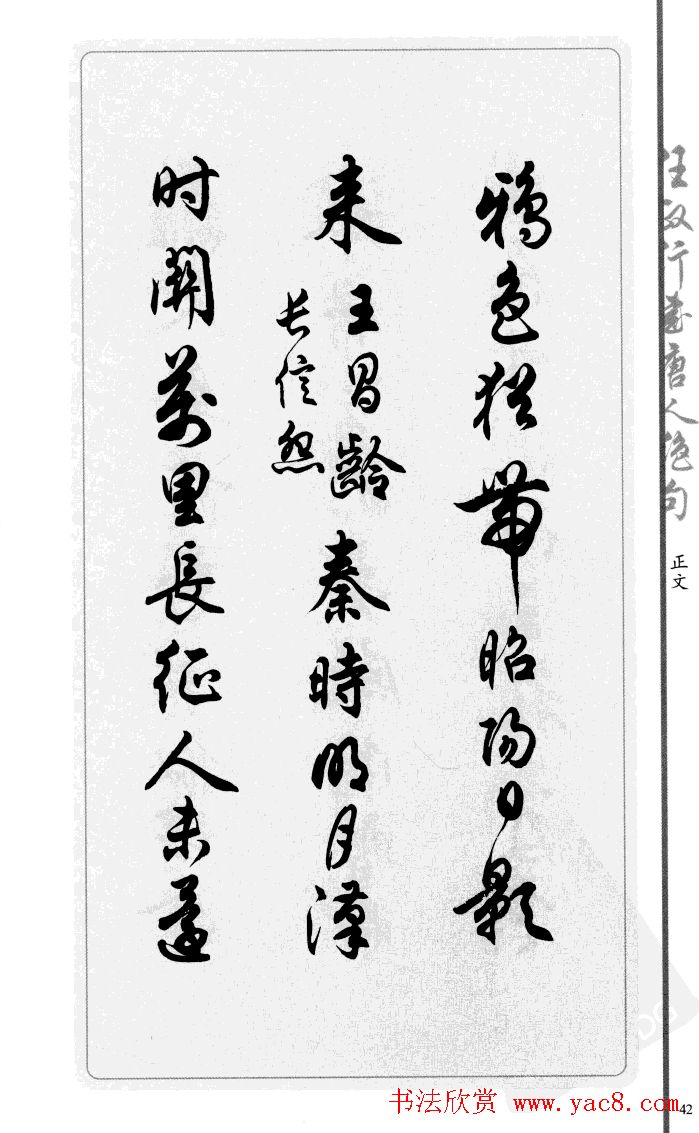 任政行書唐人绝句
正文
鴉色猶帶昭陽日影
来
王昌齡
长信怨
秦時明月漢
时關萬里長征人未還
书法欣赏 www.yac8.com
42